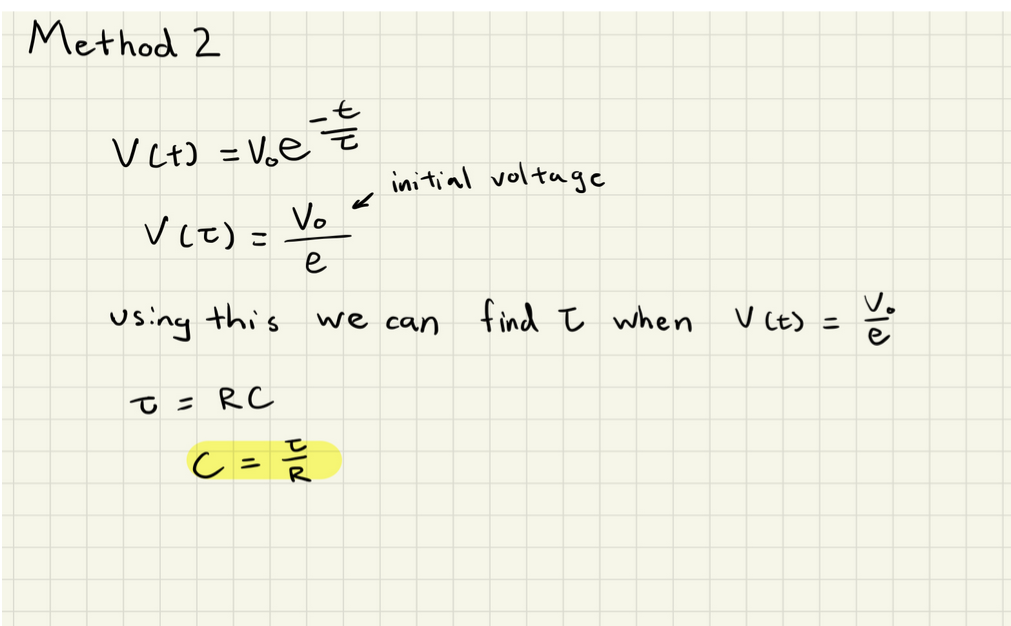 Method 2
V(t) = V₀e^(-t/τ)
initial voltage
V(τ) = V₀/e
using this we can find τ when V(t) = V₀/e
τ = RC
C = τ/R